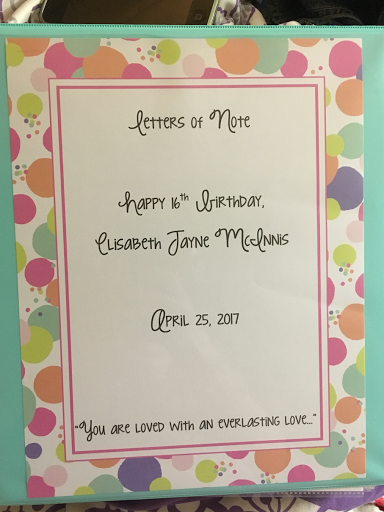 Letters of Note
Happy 16th Birthday,
Elisabeth Jayne McInnis
April 25, 2017
"You are loved with an everlasting love..."